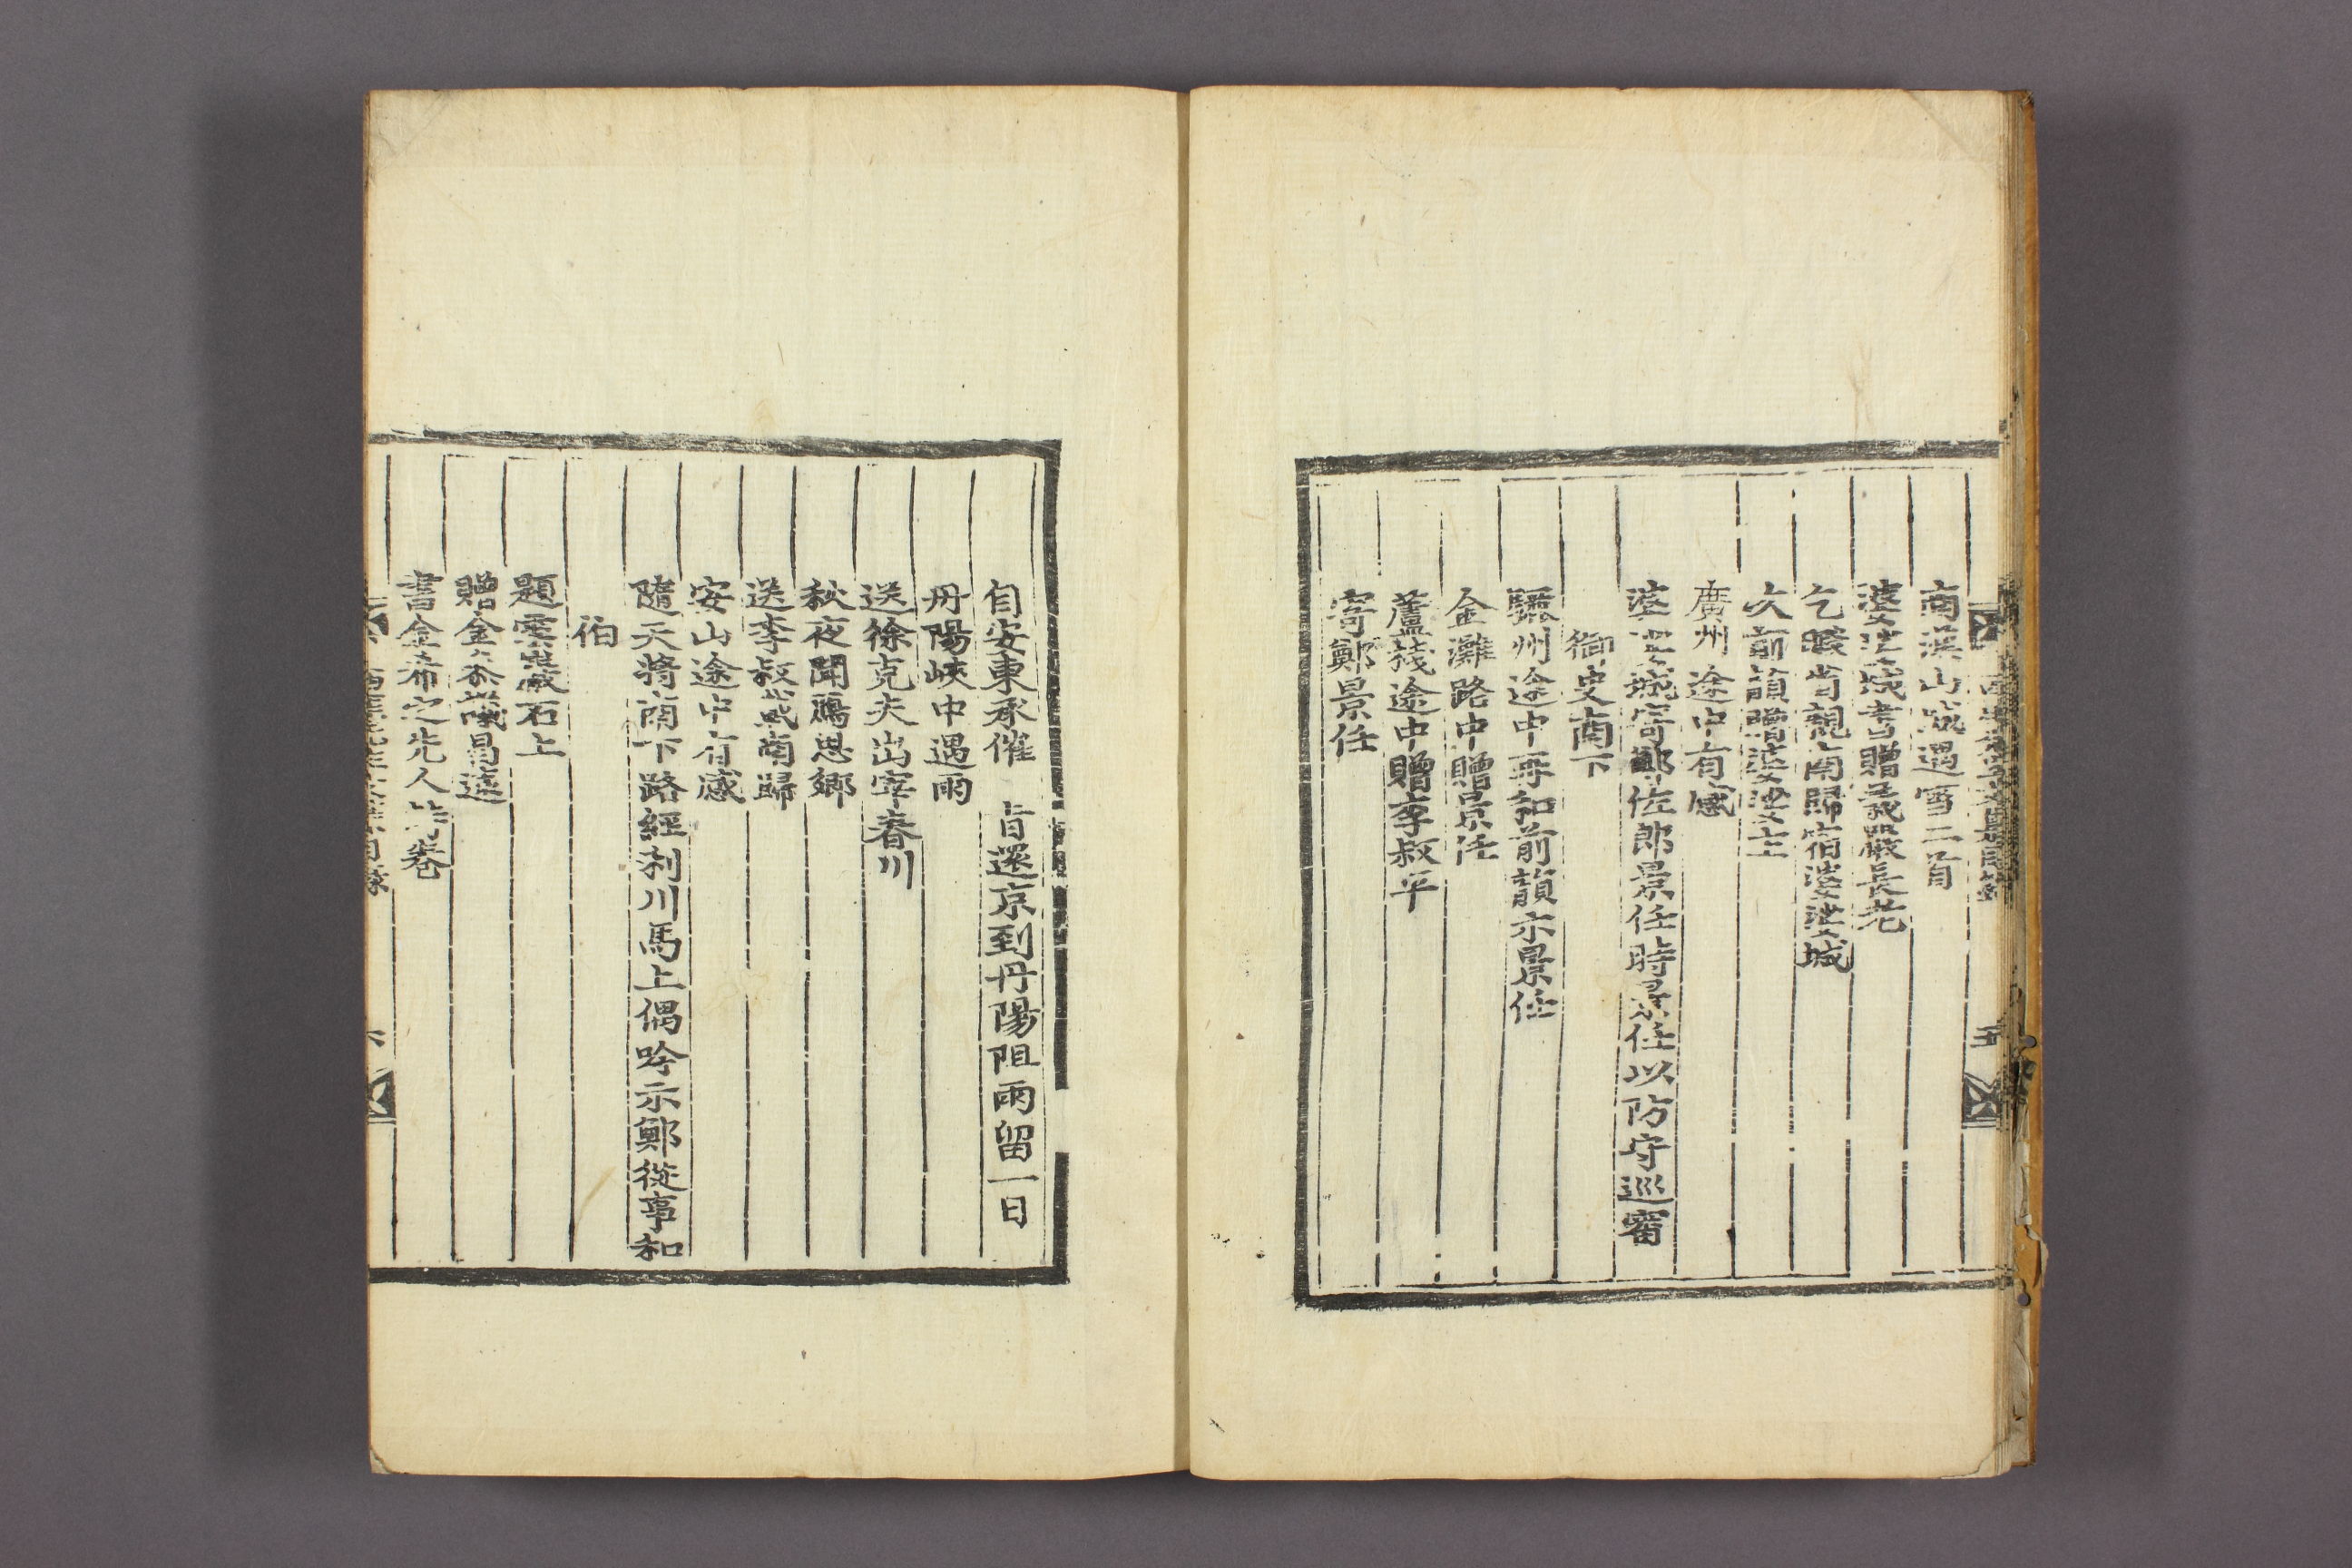 南漢山城遇雪二首
婆娑城書贈義嚴長老
乞暇省親南歸宿婆娑城
次前韻贈婆娑上
廣州途中有感
婆娑城寄鄭佐郎景任時景任以防守巡審
御史南下
驪州途中再和前韻示景任
金灘路中贈景任
蘆筏途中贈李叔平
寄鄭景任
自安東承催 旨還京到丹陽阻雨留一日
丹陽峽中遇雨
送徐克夫出宰春川
秋夜聞鴈思鄉
送李叔平南歸
安山途中有感
隨天將南下路經利川馬上偶吟示鄭從事和
伯
題裵巖石上
贈金
書金希之先人卷
五